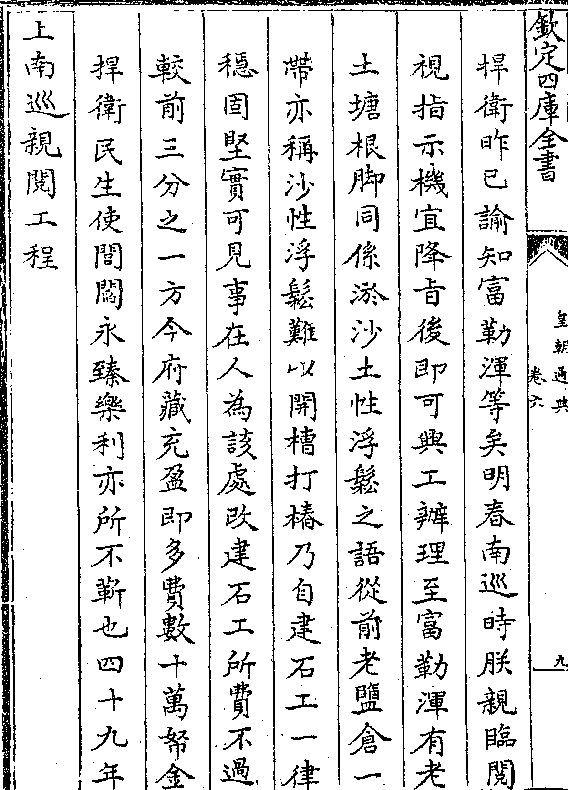 欽定四庫全書
皇朝通典
卷六
九
捍衛昨已諭知富勒渾等矣明春南巡時朕親臨閱
視指示機宜降㫖後即可興工辦理至富勒渾有老
土塘根脚同係淤沙土性浮鬆之語從前老鹽倉一
帶亦稱沙性浮鬆難以開槽打樁乃自建石工一律
穏固堅實可見事在人為該處改建石工所費不過
較前三分之一方今府藏充盈即多費數十萬帑金
捍衛民生使閭閻永臻樂利亦所不靳也四十九年
上南巡親閱工程